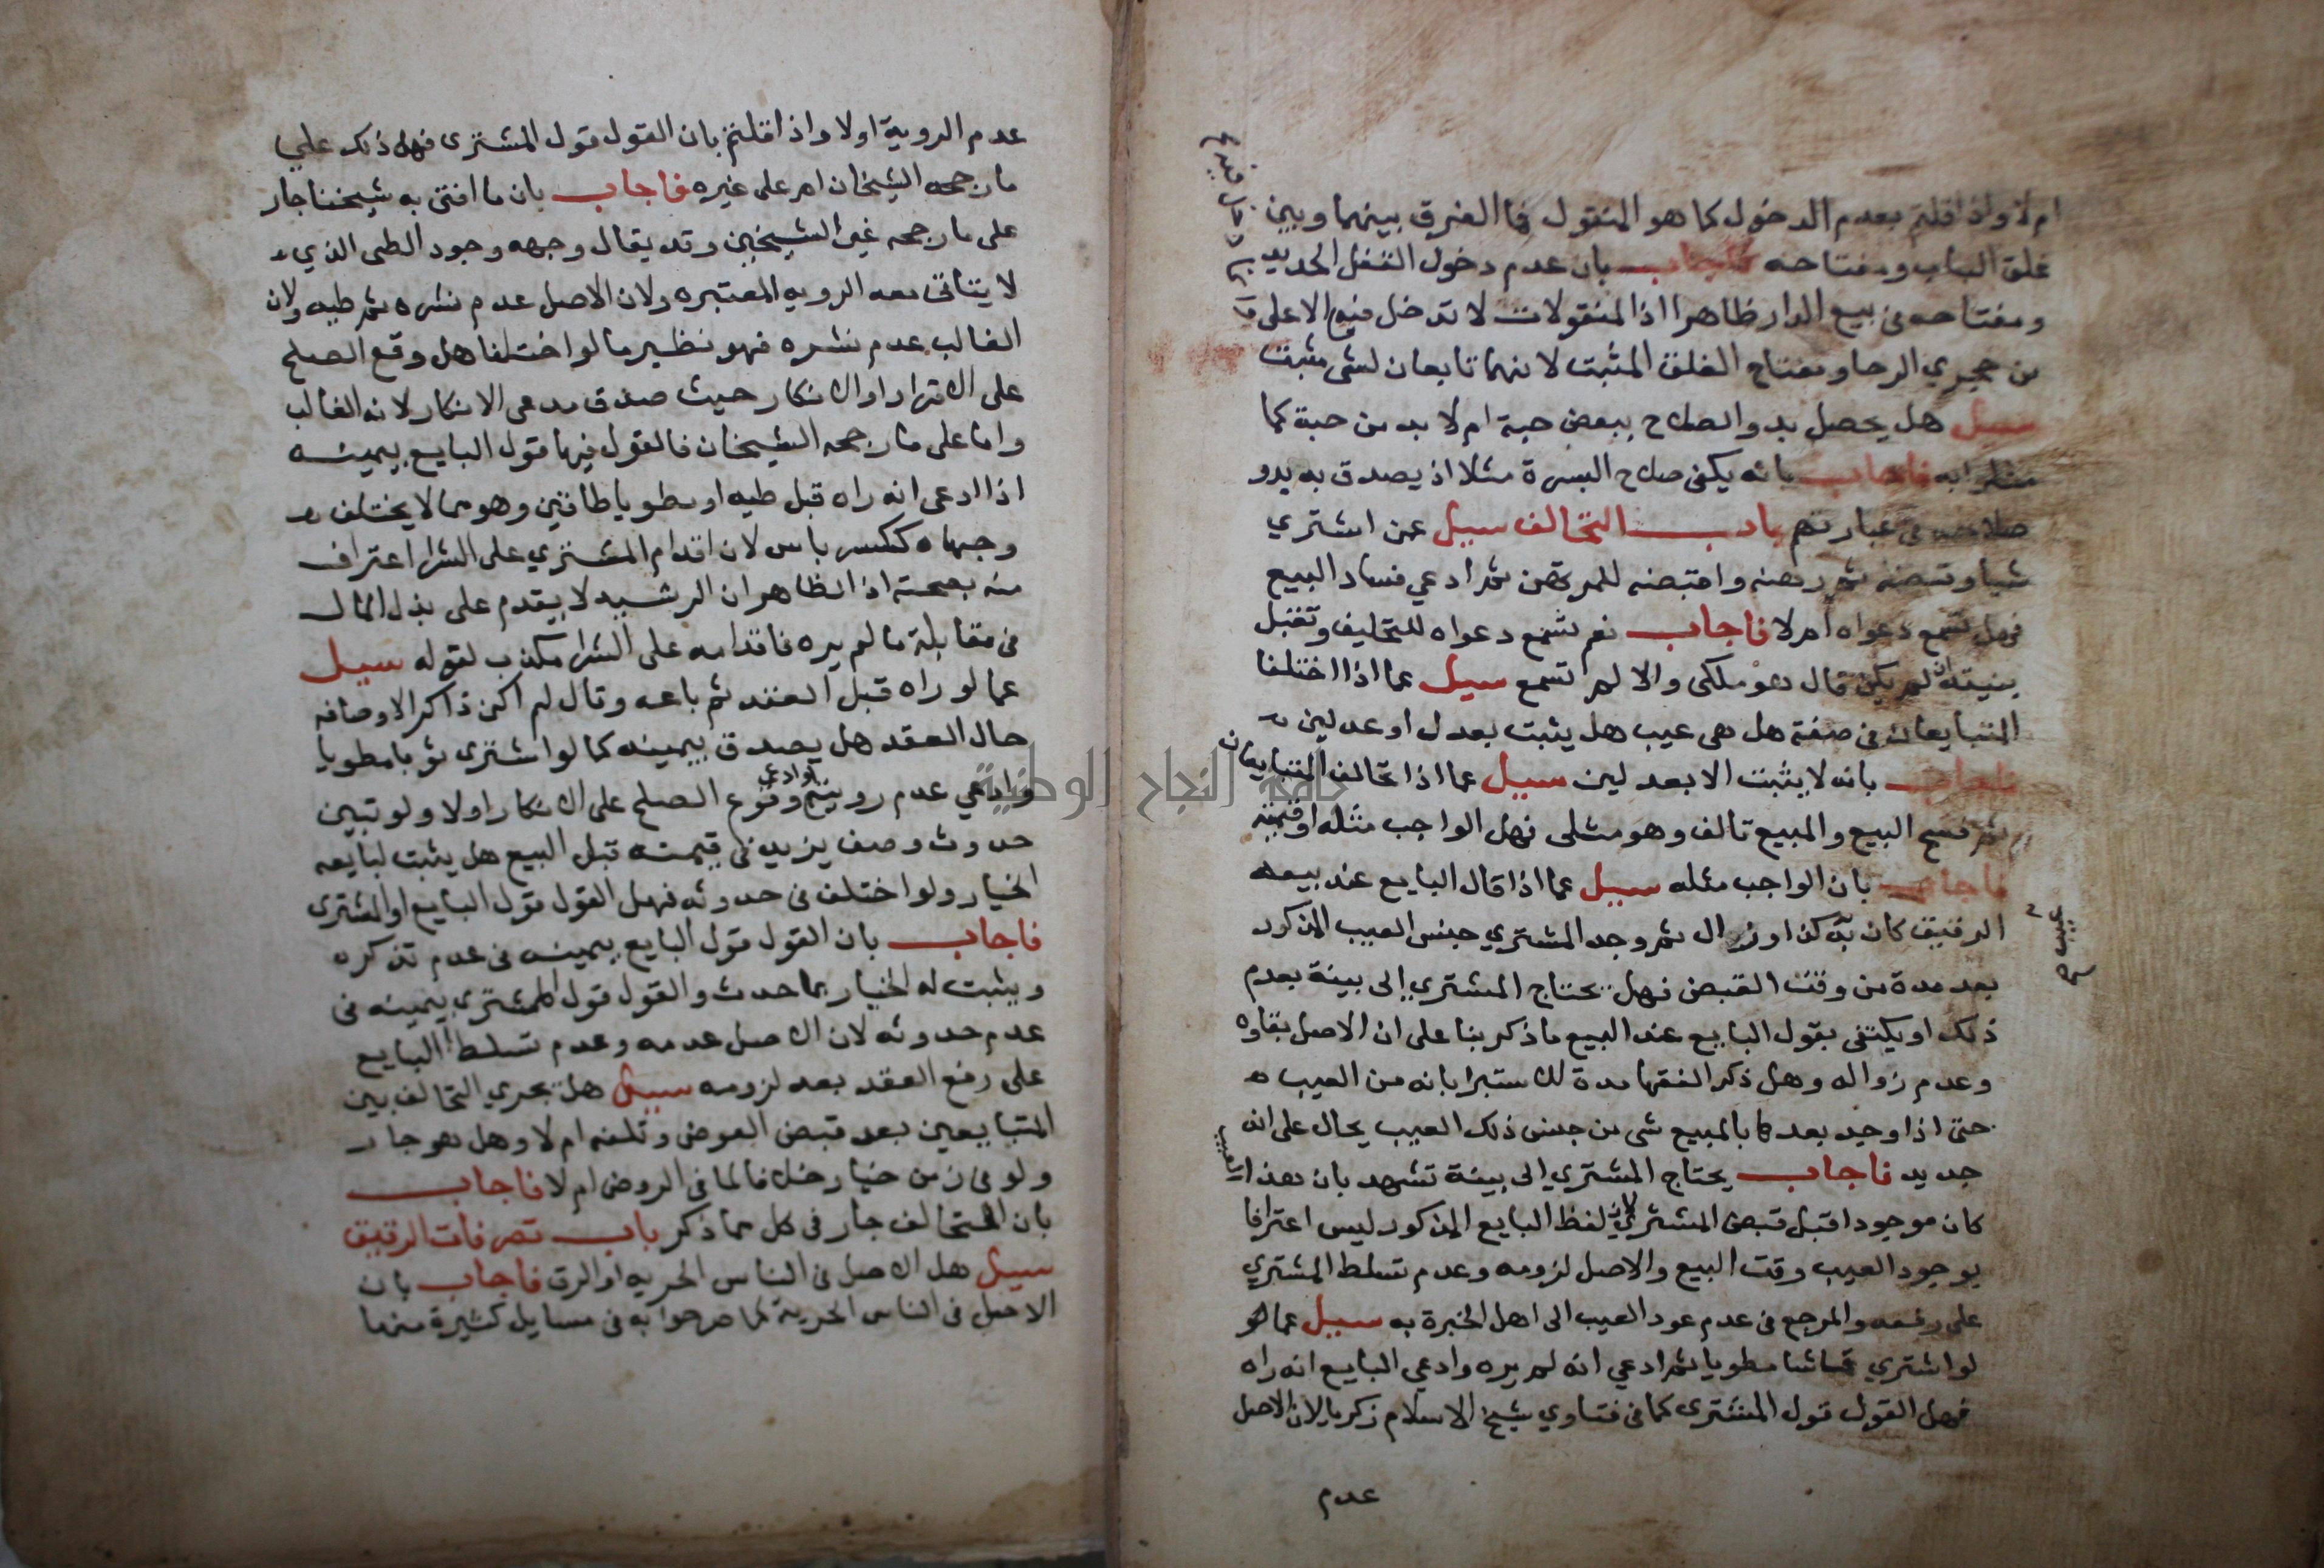 ام لا واذا قلتم بعدم الدخول كما هو المنقول فما الفرق بينهما وبين
غلق الباب ومفتاحه فاجاب بان عدم دخول القفل الحديد
ومفتاحه فى بيع الدار ظاهر اذ المنقولات لا تدخل فيه الاعلى
من حجري الرحا ومفتاح الغلق المثبت لانهما تابعان لشى مثبت
سيل هل يحصل بدو الصلاح ببعض حبة ام لا بد من حبة كما
فاجاب بانه يكفى صلاح البسرة مثلا اذ يصدق به بدو
صلاحه فى عبارتهم باب التخالف سيل عمن اشتري
شيا وقبضه ثم رهنه واقبضه للمرتهن ثم ادعي فساد البيع
فهل تسمع دعواه ام لا فاجاب نعم تسمع دعواه للتحليف وتقبل
بنيته ان لم يكن قال هو ملكى والا لم تسمع سيل عما اذا اختلفا
المتبايعان فى صفة هل هى عيب هل يثبت بعدل او عدلين
فاجاب بانه لا يثبت الا بعد لين سيل عما اذا تخالف المتبايعان
ثم فسخ البيع والمبيع تالف وهو مثلى فهل الواجب مثله او قيمته
فاجاب بان الواجب مثله سيل عما اذا قال البايع عند بيعه
الرقيق كان به كذا وزال ثم وجد المشتري جنس العيب المذكور
بعد مدة من وقت القبض فهل يحتاج المشتري الى بينة بعدم
ذلك او يكتفى بقول البايع عند البيع ما ذكر بنا على ان الاصل بقاوه
وعدم زواله وهل ذكر الفقها مدة للاستبرا بانه من العيب
حتى اذا وجد بعدها بالمبيع شى من جنس ذلك العيب يحال على انه
جديد فاجاب يحتاج المشتري الى بينة تشهد بان هذا العيب
كان موجودا قبل قبض المشتري لان لفظ البايع المذكور ليس اعترافا
بوجود العيب وقت البيع والاصل لزومه وعدم تسلط المشتري
على رفعه والمرجع فى عدم عود العيب الى اهل الخبرة به سيل عما
لو اشتري قماشا مطويا ثم ادعي انه لم يره وادعي البايع انه راه
فهل القول قول المشترى كما فى فتاوي شيخ الاسلام زكريا لان الاصل
عدم
عدم الروية اولا واذا قلتم بان القول قول المشترى فهل ذلك علي
ما رجحه الشيخان ام على غيره فاجاب بان ما افتى به شيخنا جار
على ما رجحه غير الشيخين وقد يقال وجهه وجود الطى الذي
لا يتاتى معه الرويه المعتبره ولان الاصل عدم نشره ثم طيه ولان
الغالب عدم نشره فهو نظير ما لو اختلفا هل وقع الصلح
على الاقرار او الانكار حيث صدق مدعى الانكار لانه الغالب
واما على ما رجحه الشيخان فالقول فيها قول البايع بيمينه
اذا ادعى انه راه قبل طيه او مطويا طاقين وهو مما لا يختلف
وجهاه ككرباس لان اقدام المشتري على الشرا اعتراف
منه بصحته اذ الظاهر ان الرشيد لا يقدم على بذل المال
فى مقابلة ما لم يره فاقدامه على الشرا مكذب لقوله سيل
عما لو راه قبل العقد ثم باعه وقال لم اكن ذاكر الاوصافه
حال العقد هل يصدق بيمينه كما لو اشترى ثوبا مطويا
وادعي عدم رويته او ادعى وقوع الصلح على الانكار اولا ولو تبين
حدوث وصف يزيد فى قيمته قبل البيع هل يثبت لبايعه
الخيار ولو اختلف فى حدوثه فهل القول قول البايع او المشترى
فاجاب بان القول قول البايع بيمينه فى عدم تذكره
ويثبت له الخيار بما حدث والقول قول المشتري بيمينه فى
عدم حدوثه لان الاصل عدمه وعدم تسلط البايع
على رفع العقد بعد لزومه سيل هل يجري التخالف بين
المتبايعين بعد قبض العوض وتلفه ام لا وهل هو جار
ولو فى زمن خيار خلافا لما فى الروض ام لا فاجاب
بان التخالف جار فى كل مما ذكر باب تصرفات الرقيق
سيل هل الاصل فى الناس الحريه او الرق فاجاب بان
الاصل فى الناس الحرية كما صرحوا به فى مسايل كثيرة منها
جامعة النجاح الوطنية